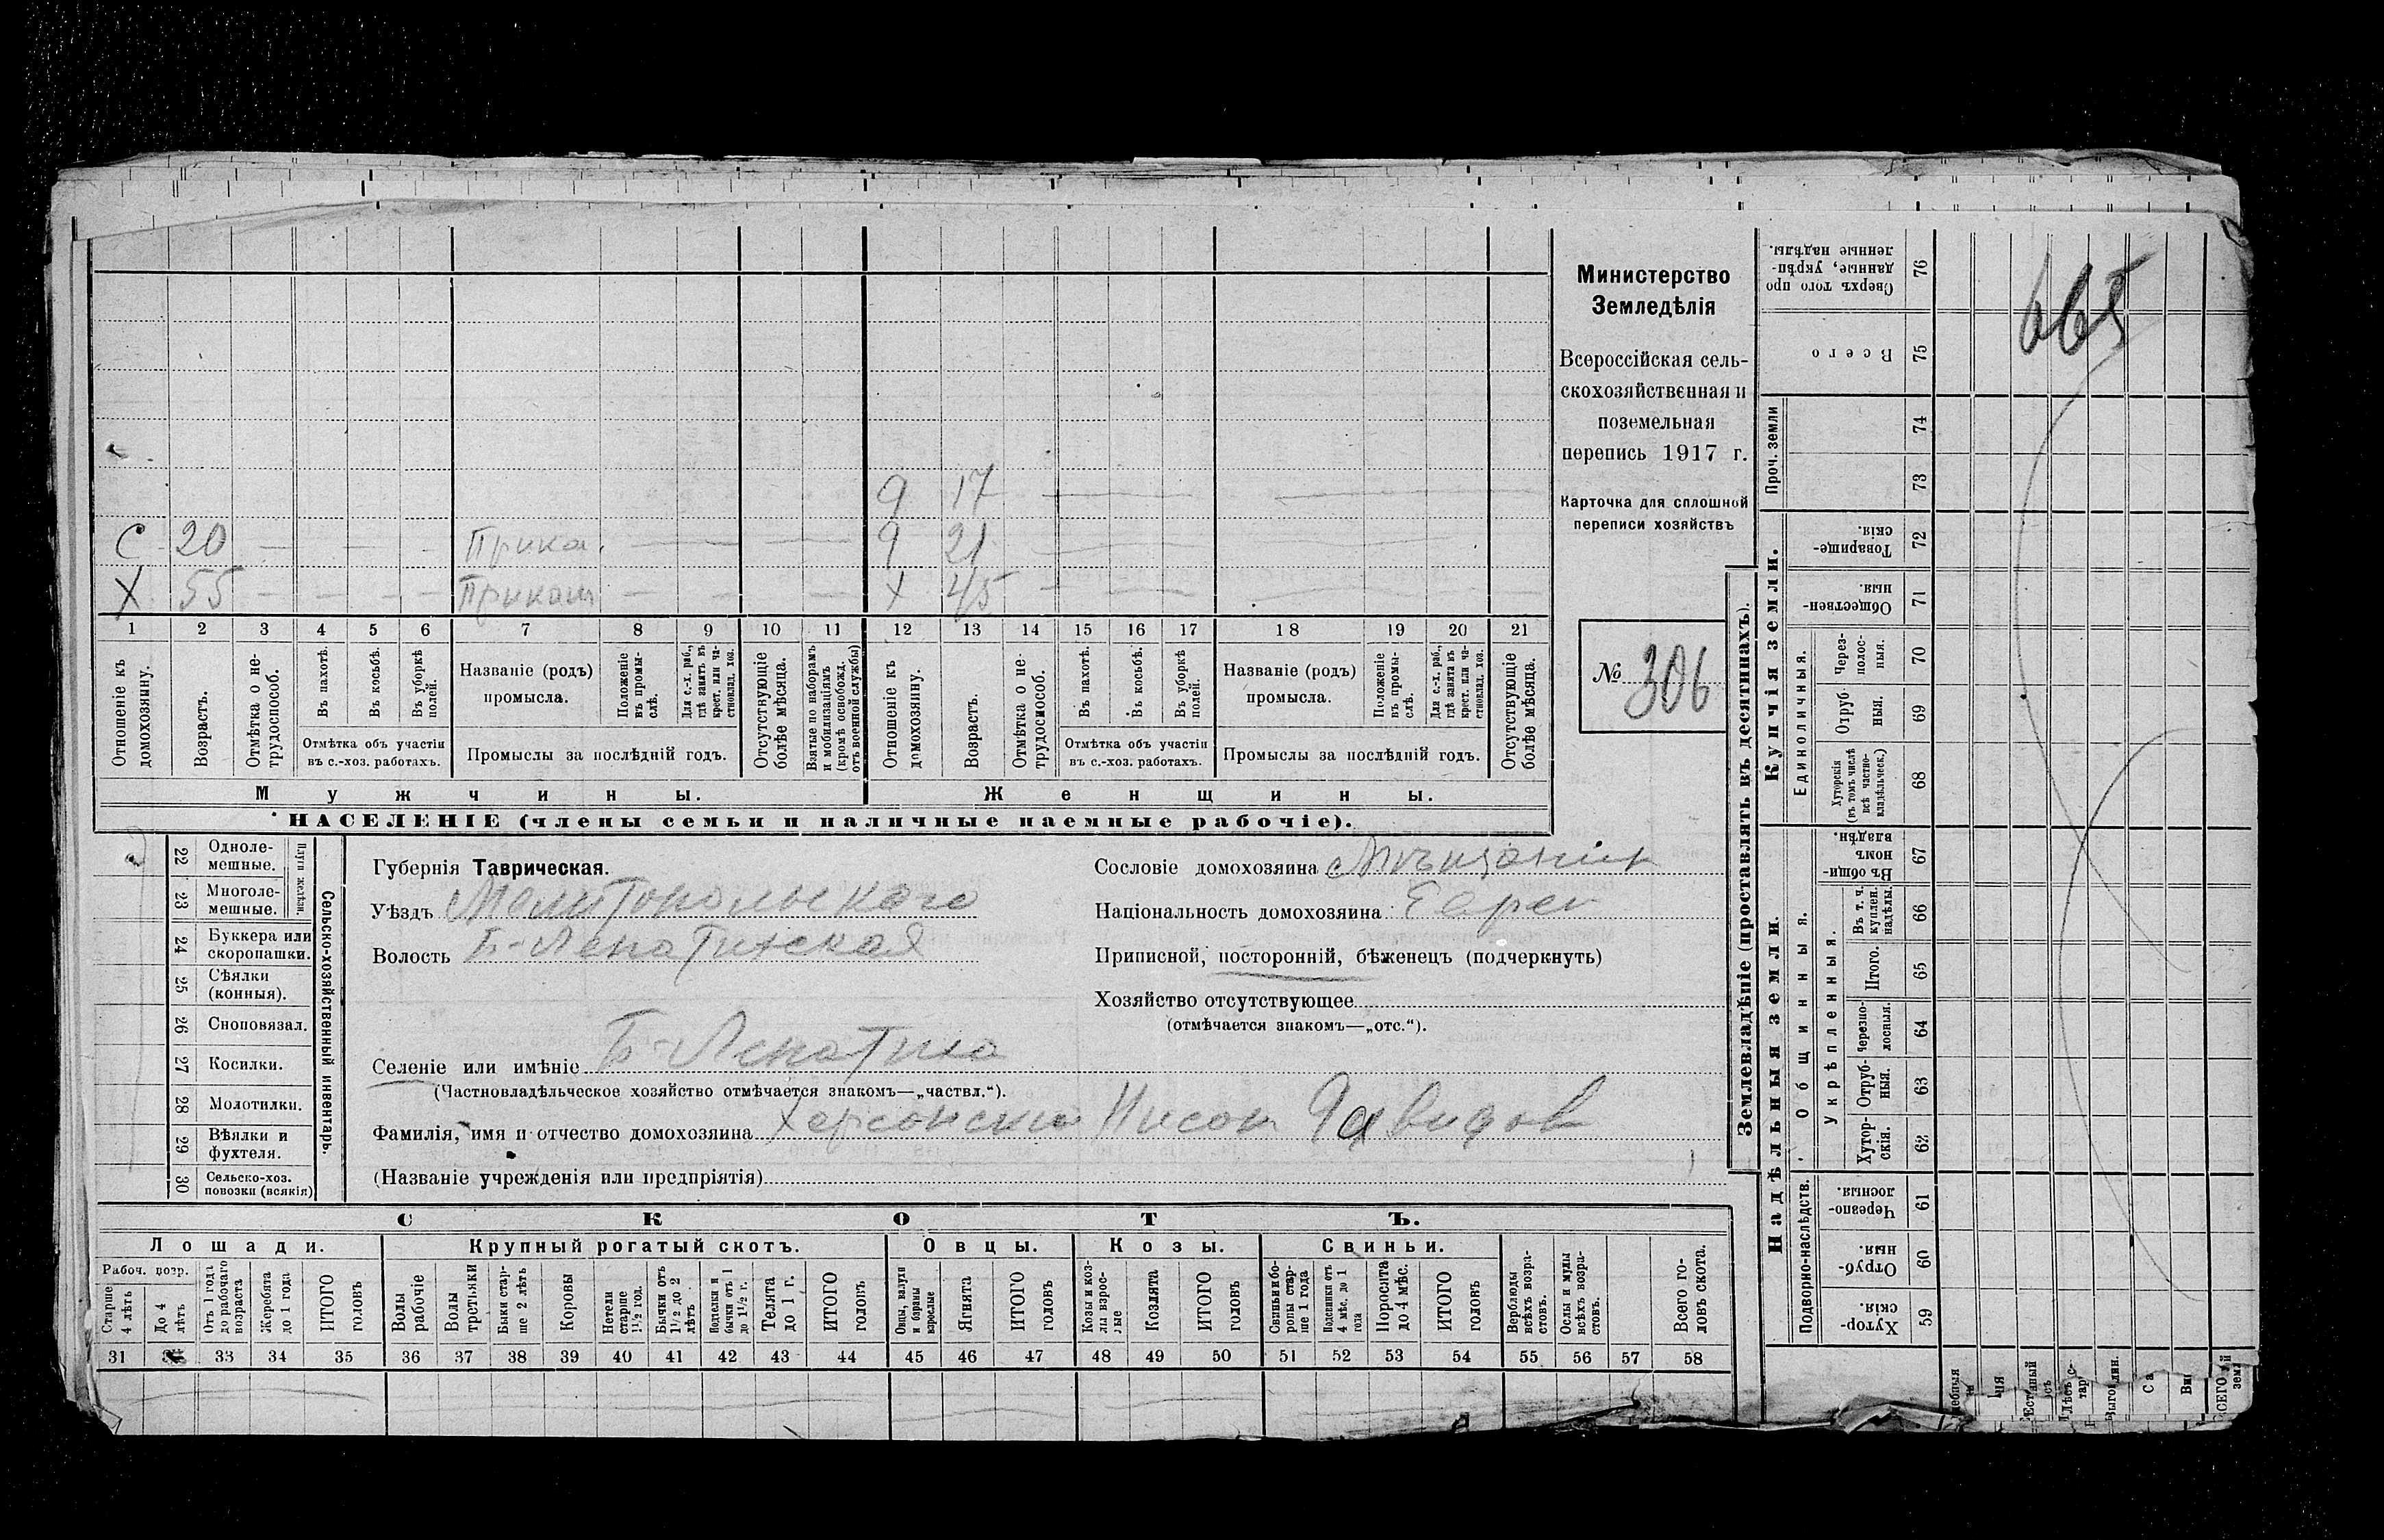 665
д 17
С 20 Прика. д 21
Х 55 Прикащ Х 45
1 2 3 4 5 6 7 8 9 10 11 12 13 14 15 16 17 18 19 20 21
Отношеніе къ домохозяину.
Возрастъ.
Отмѣтка о нетрудоспособ.
Въ пахотѣ.
Въ косьбѣ.
Въ уборкѣ полей.
Отмѣтка объ участіи
въ с.-хоз. работахъ.
Названіе (родъ)
промысла.
Положеніе въ промыслѣ.
Для с.-х. раб., гдѣ занятъ въ крест. или частновлад. хоз.
Промыслы за послѣдній годъ.
Отсутствующіе болѣе мѣсяца.
Взятые по наборамъ и мобилизаціямъ (кромѣ освобожд. отъ военной службы)
Отношеніе къ домохозяину.
Возрастъ.
Отмѣтка о нетрудоспособ.
Въ пахотѣ.
Въ косьбѣ.
Въ уборкѣ полей.
Отмѣтка объ участіи
въ с.-хоз. работахъ.
Названіе (родъ)
промысла.
Положеніе въ промыслѣ.
Для с.-х. раб., гдѣ занята въ крест. или частновлад. хоз.
Промыслы за послѣдній годъ.
Отсутствующіе болѣе мѣсяца.
Мужчины.
Женщины.
НАСЕЛЕНІЕ (члены семьи и наличные наемные рабочіе).
Министерство
Земледѣлія
Всероссійская сель-
скохозяйственная и
поземельная
перепись 1917 г.
Карточка для сплошной
переписи хозяйствъ
№ 306
Сельско-хозяйственный инвентарь.
Плуги желѣзн.
22 Одноле-
мешные.
23 Многоле-
мешные.
24 Буккера или
скоропашки.
25 Сѣялки
(конныя).
26 Сноповязал.
27 Косилки.
28 Молотилки.
29 Вѣялки и
фухтеля.
30 Сельско-хоз.
повозки (всякія)
Губернія Таврическая.
Уѣздъ Мелитопольскаго
Волость Б-Лепатихская
Селеніе или имѣніе Б-Лепатиха
(Частновладѣльческое хозяйство отмѣчается знакомъ—„частвл.“).
Фамилія, имя и отчество домохозяина Херсонский Нисон Давидов
(Названіе учрежденія или предпріятія)
Сословіе домохозяина Мѣщанин
Національность домохозяина Еврей
Приписной, посторонній, бѣженецъ (подчеркнуть)
Хозяйство отсутствующее
(отмѣчается знакомъ—„отс.“).
СКОТЪ.
Лошади.
Крупный рогатый скотъ.
Овцы.
Козы.
Свиньи.
Рабоч. возр.
Старше 4 лѣтъ
До 4 лѣтъ
Отъ 1 года до рабочаго возраста
Жеребята до 1 года
ИТОГО головъ
Волы рабочіе
Волы третьяки
Быки старше 2 лѣтъ
Коровы
Нетели старше 1½ год.
Бычки отъ 1½ до 2 лѣтъ
Подтелки и бычки отъ 1 до 1½ г.
Телята до 1 г.
ИТОГО головъ
Овцы, валухи и бараны взрослые
Ягнята
ИТОГО головъ
Козы и козлы взрослые
Козлята
ИТОГО головъ
Свиньи и боровы старше 1 года
Подсвинки отъ 4 мѣс. до 1 года
Поросята до 4 мѣс.
ИТОГО головъ
Верблюды всѣхъ возрастовъ.
Ослы и мулы всѣхъ возрастовъ.
Всего головъ скота.
31 33 34 35 36 37 38 39 40 41 42 43 44 45 46 47 48 49 50 51 52 53 54 55 56 57 58
Землевладѣніе (проставлять въ десятинахъ).
Надѣльныя земли.
Купчія земли.
Проч. земли
Подворно-наслѣдств.
Общинныя.
Укрѣпленныя.
Единоличныя.
Сверхъ того проданные, укрѣпленные надѣлы. 76
Всего 75
74
73
Товарищескія. 72
Общественныя 71
Черезполосныя. 70
Отрубныя. 69
Хуторскія (въ томъ числѣ всѣ частновладѣльческ.) 68
Въ общинномъ владѣн. 67
Въ т. ч. куплен. надѣлы. 66
Итого. 65
Черезполосныя. 64
Отрубныя. 63
Хуторскія. 62
Черезполосныя. 61
Отрубныя. 60
Хуторскія. 59